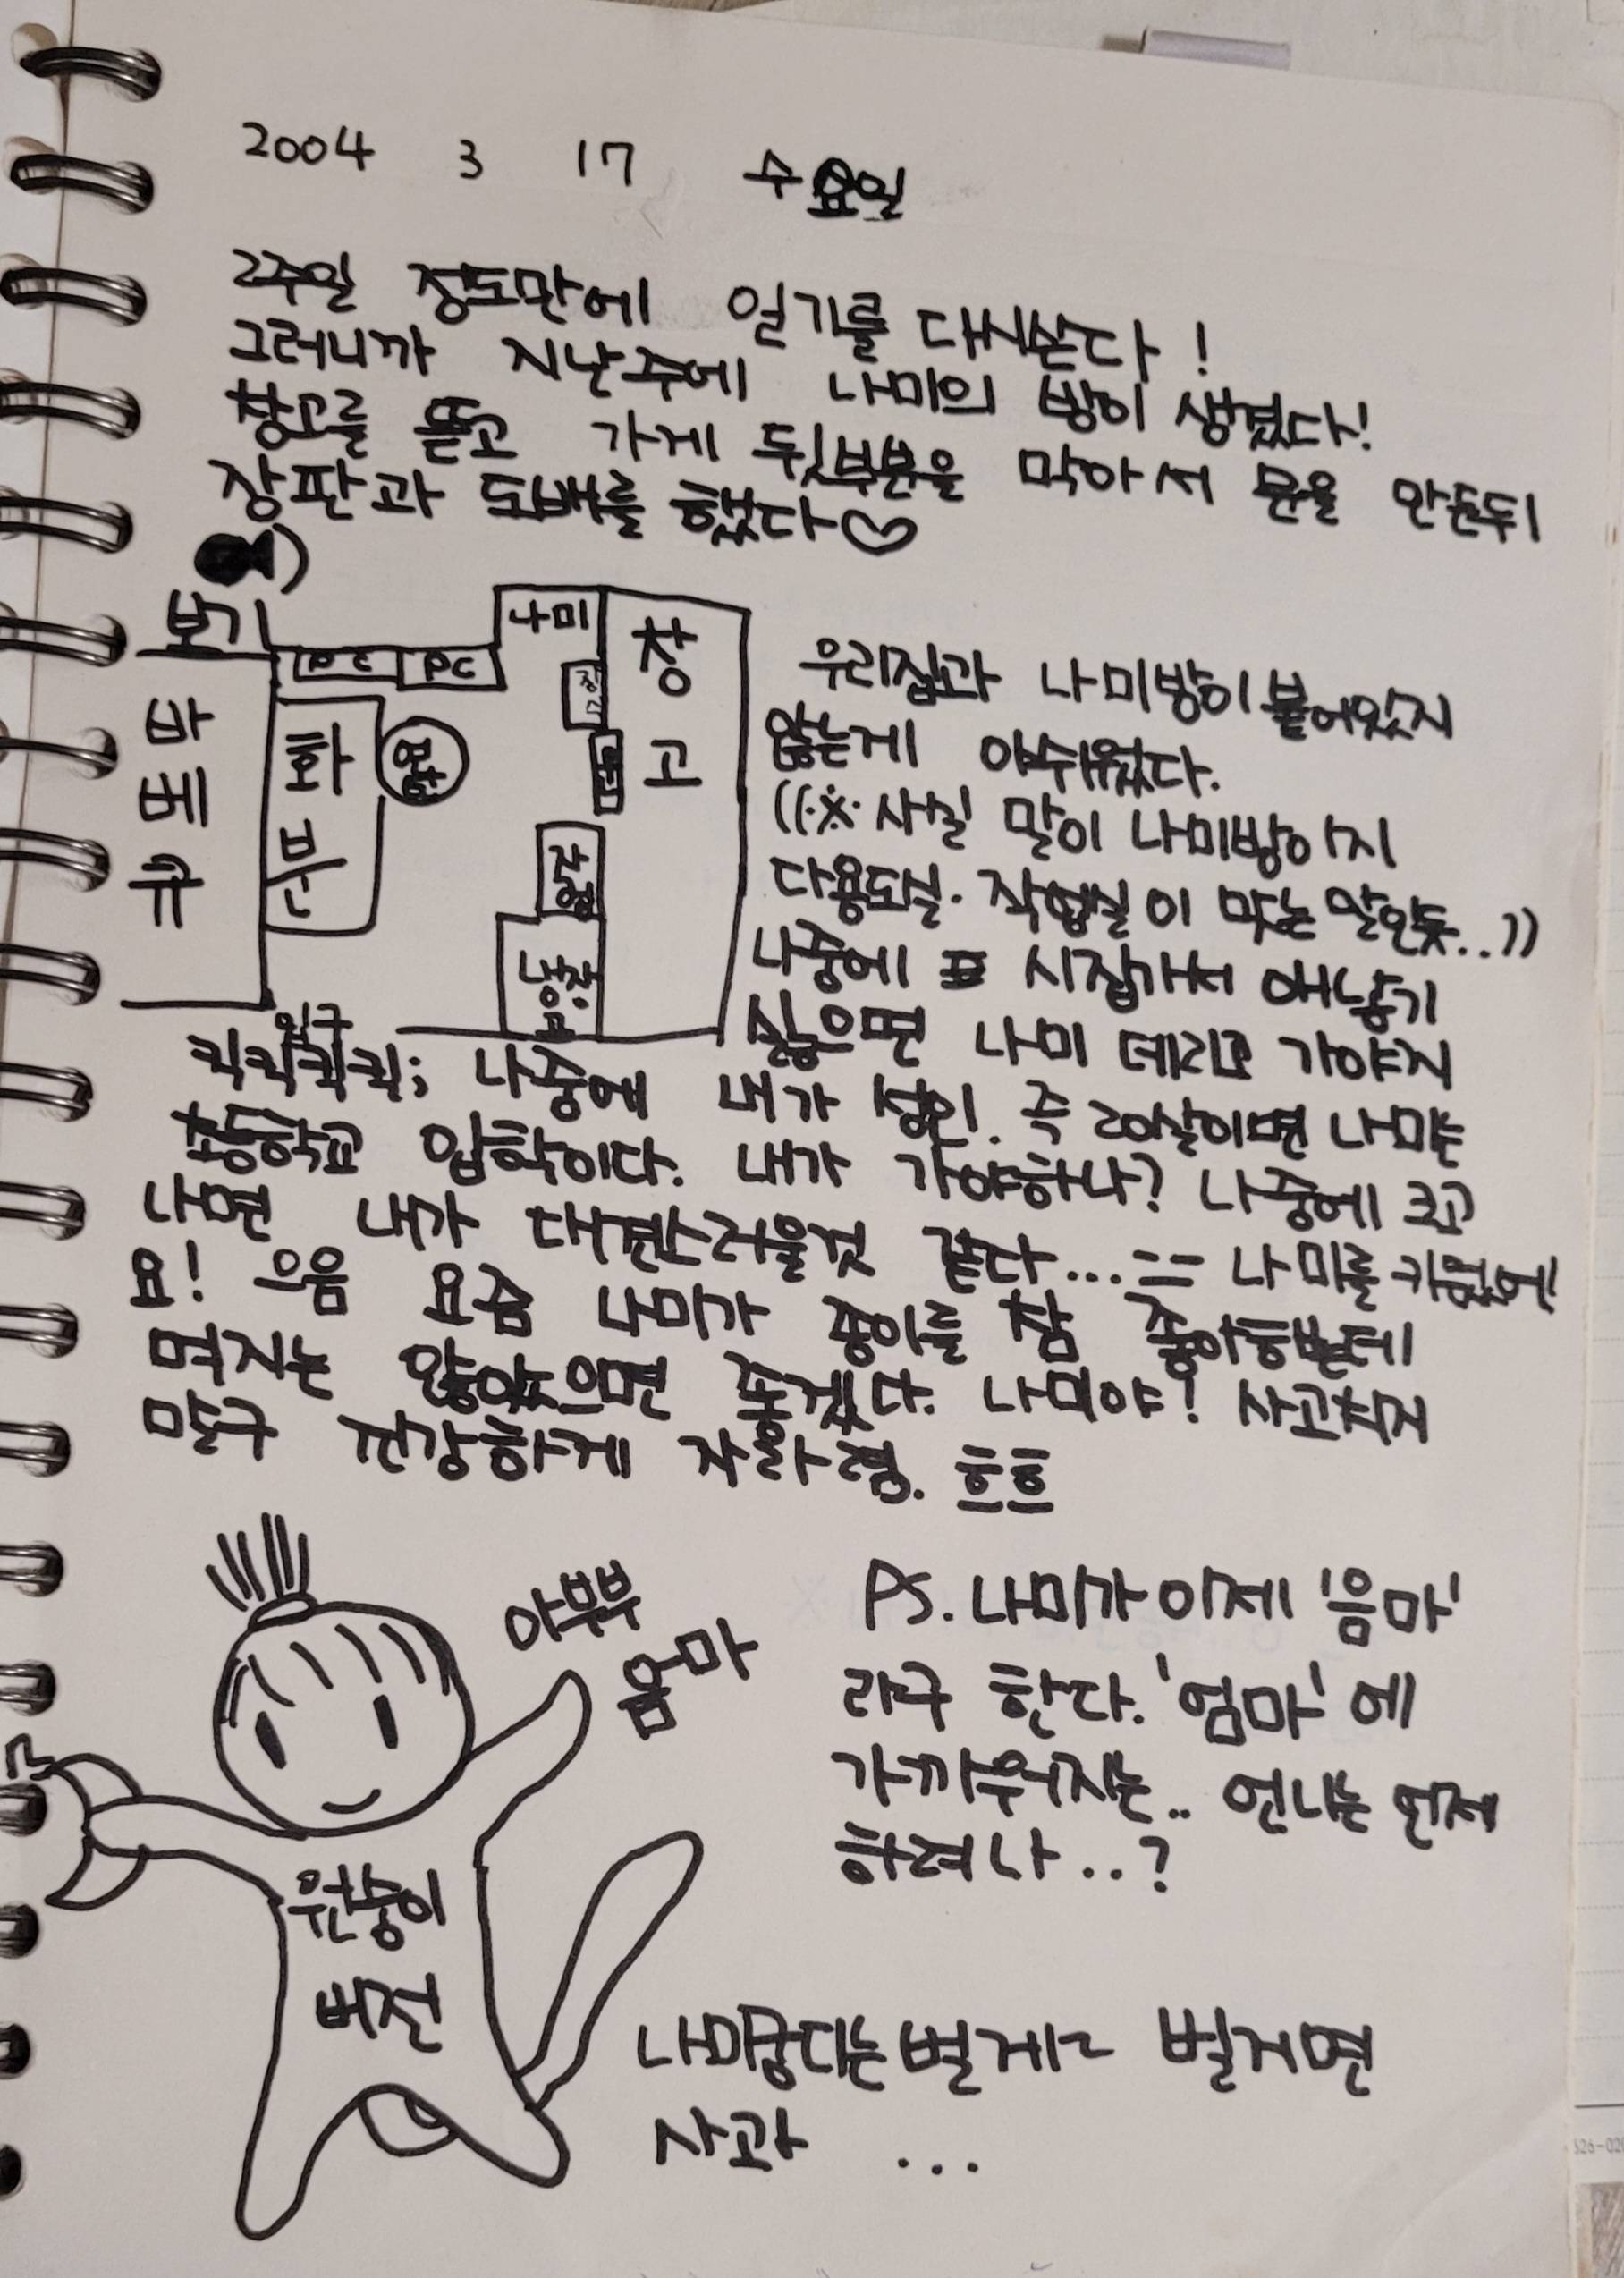 2004 3 17 수요일
2주일 정도만에 일기를 다시쓴다!
그러니까 지난주에 나미의 방이 생겼다!
창고를 뜯고 가게 뒷부분을 막아서 문을 만든뒤
장판과 도배를 했다♡
보기
나미
PC PC
창고
바베큐
화분
장
냉장고
입구
우리집과 나미방이 붙어있지
않는게 아쉬웠다.
((※ 사실 말이 나미방이지
다용도실. 작업실이 맞는 말인듯..))
나중에 시집가서 애낳기
싫으면 나미 데리고 가야지
킥킥킥킥; 나중에 내가 성인. 즉 20살이면 나미는
초등학교 입학이다. 내가 가야하나? 나중에 크고
나면 내가 대견스러울것 같다...== 나미를 키웠어
요! 으음 요즘 나미가 종이를 참 좋아하는데
먹지는 않았으면 좋겠다. 나미야! 사고치지
말구 건강하게 자라렴. 흐흐
아부부
음마
원숭이
버전
PS. 나미가 이제 '음마'
라구 한다. '엄마'에
가까워지는.. 언니는 언제
하려나..?
나미궁디는 벌게~ 벌거면
사과 ...